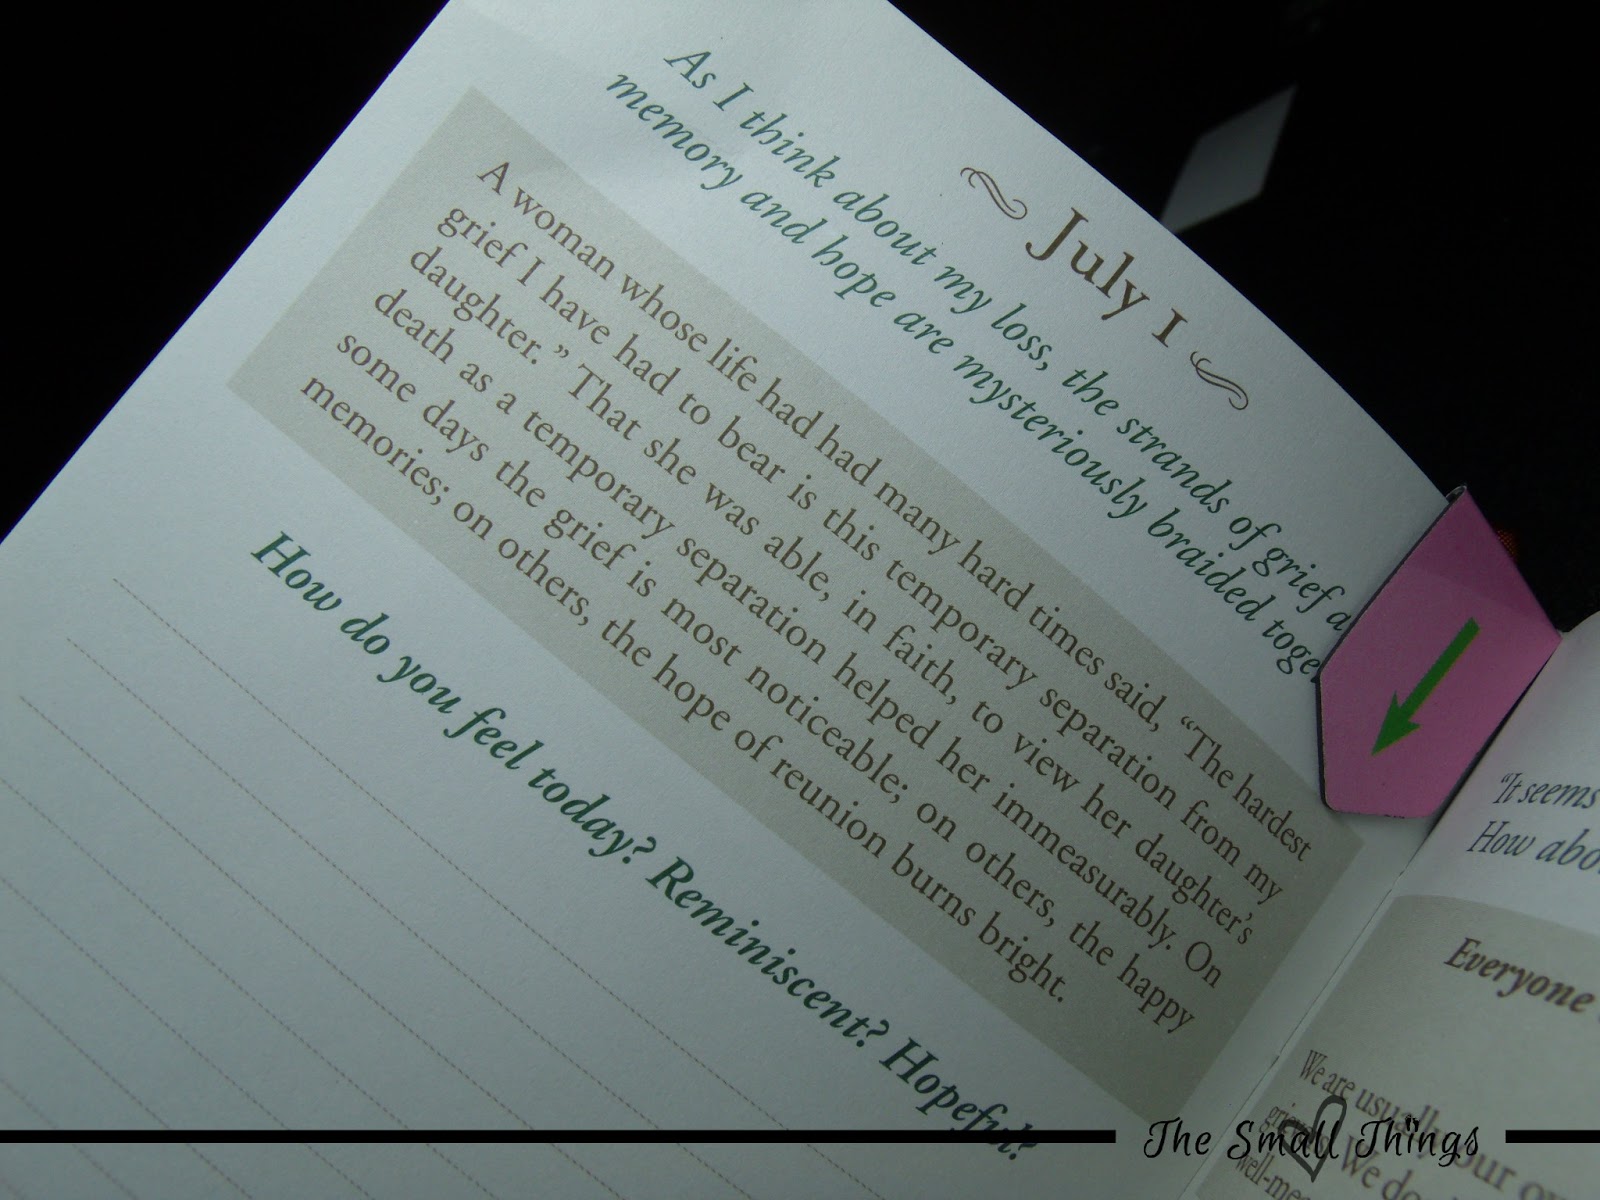 July 1
As I think about my loss, the strands of grief
memory and hope are mysteriously braided
A woman whose life had had many hard times said, “The hardest
grief I have had to bear is this temporary separation from my
daughter.” That she was able, in faith, to view her daughter’s
death as a temporary separation helped her immeasurably. On
some days the grief is most noticeable; on others, the happy
memories; on others, the hope of reunion burns bright.
How do you feel today? Reminiscent? Hopeful?
“It seems
How
Everyone
We are usually our
We do
The Small Things